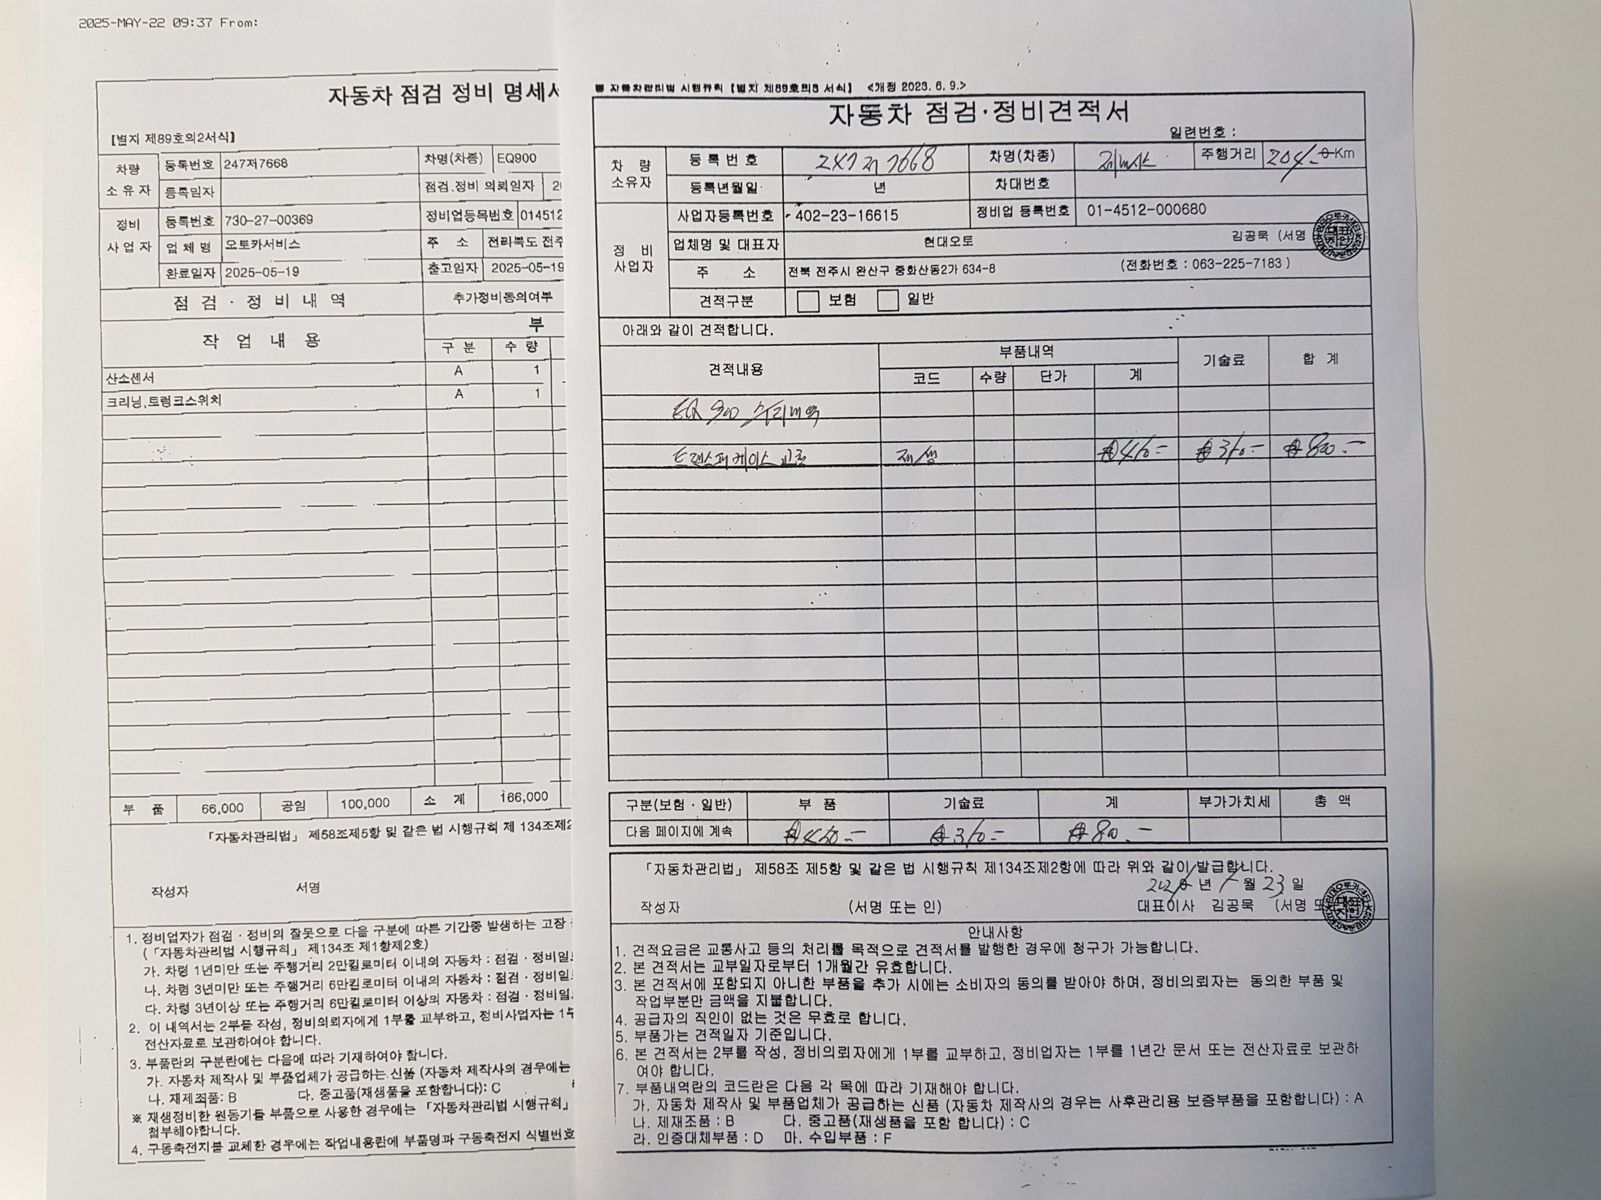 2025-MAY-22 09:37 From:
자동차 점검 정비 명세서
[별지 제89호의2서식]
차량 소유자 등록번호 247저7668 차명(차종) EQ900
등록일자 점검.정비 의뢰일자
정비 사업자 등록번호 730-27-00369 정비업등록번호 014512
업체명 오토카서비스 주 소 전라북도 전주
완료일자 2025-05-19 출고일자 2025-05-19
점검 · 정비내역 추가정비동의여부
작업내용 부
구분 수량
산소센서 A 1
크리닝,토렁크스위치 A 1
부품 66,000 공임 100,000 소계 166,000
「자동차관리법」 제58조제5항 및 같은 법 시행규칙 제 134조제2
작성자 서명
1. 정비업자가 점검 · 정비의 잘못으로 다음 구분에 따른 기간중 발생하는 고장
(「자동차관리법 시행규칙」 제134조 제1항제2호)
가. 차령 1년미만 또는 주행거리 2만킬로미터 이내의 자동차 : 점검 · 정비일
나. 차령 3년미만 또는 주행거리 6만킬로미터 이내의 자동차 : 점검 · 정비일
다. 차령 3년이상 또는 주행거리 6만킬로미터 이상의 자동차 : 점검 · 정비일
2. 이 내역서는 2부를 작성, 정비의뢰자에게 1부를 교부하고, 정비사업자는 1부
전산자료로 보관하여야 합니다.
3. 부품란의 구분란에는 다음에 따라 기재하여야 합니다.
가. 자동차 제작사 및 부품업체가 공급하는 신품 (자동차 제작사의 경우에는
나. 재제조품: B 다. 중고품(재생품을 포함합니다): C
※ 재생정비한 원동기를 부품으로 사용한 경우에는 「자동차관리법 시행규칙」
첨부해야합니다.
4. 구동축전지를 교체한 경우에는 작업내용란에 부품명과 구동축전지 식별번호
■ 자동차관리법 시행규칙 [별지 제89호의3 서식] <개정 2023. 6. 9.>
자동차 점검·정비견적서
일련번호 :
차량 소유자 등록번호 247저7668 차명(차종) 제네시스 주행거리 204 Km
등록년월일 년 차대번호
정비 사업자 사업자등록번호 402-23-16615 정비업 등록번호 01-4512-000680
업체명 및 대표자 현대오토 김공묵 (서명
주 소 전북 전주시 완산구 중화산동2가 634-8 (전화번호 : 063-225-7183 )
견적구분 □ 보험 □ 일반
아래와 같이 견적합니다.
견적내용 부품내역 기술료 합계
코드 수량 단가 계
EQ 900 수리내역
트랜스퍼케이스 교환 재생
구분(보험 · 일반) 부품 기술료 계 부가가치세 총액
다음 페이지에 계속
「자동차관리법」 제58조 제5항 및 같은 법 시행규칙 제134조제2항에 따라 위와 같이 발급합니다.
년 월 23 일
작성자 (서명 또는 인) 대표이사 김공묵 (서명 또
안내사항
1. 견적요금은 교통사고 등의 처리를 목적으로 견적서를 발행한 경우에 청구가 가능합니다.
2. 본 견적서는 교부일자로부터 1개월간 유효합니다.
3. 본 견적서에 포함되지 아니한 부품을 추가 시에는 소비자의 동의를 받아야 하며, 정비의뢰자는 동의한 부품 및
작업부분만 금액을 지불합니다.
4. 공급자의 직인이 없는 것은 무효로 합니다.
5. 부품가는 견적일자 기준입니다.
6. 본 견적서는 2부를 작성, 정비의뢰자에게 1부를 교부하고, 정비업자는 1부를 1년간 문서 또는 전산자료로 보관하
여야 합니다.
7. 부품내역란의 코드란은 다음 각 목에 따라 기재해야 합니다.
가. 자동차 제작사 및 부품업체가 공급하는 신품 (자동차 제작사의 경우는 사후관리용 보증부품을 포함합니다) : A
나. 제재조품 : B 다. 중고품(재생품을 포함 합니다) : C
라. 인증대체부품 : D 마. 수입부품 : F